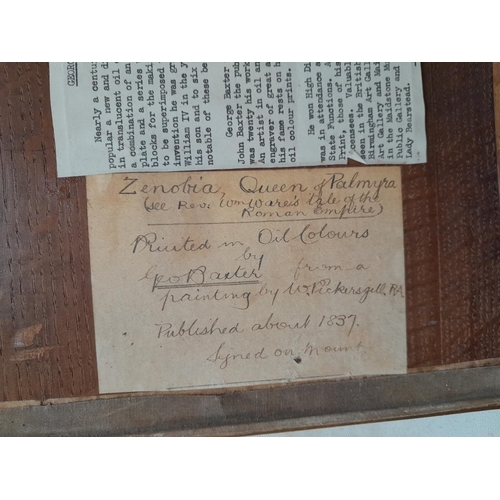 GEOR
Nearly a centu
popular a new and d
in translucent oil
a combination of an
plate and a series
blocks for the maki
to be superimposed
invention he was gr
William IV in the y
his son and to six
notable of these be
George Baxter
John Baxter the pub
was twenty his work
An artist in oil an
engraver of great
his fame rests on h
oil colour prints.
He won High Di
was in attendance
State Functions. A
Print, those of his
successes. Valuabl
seen in the British
Birmingham Art Gall
Art Gallery and Mai
in the Maidstone Mu
Public Gallery and
Lady Bearstead.
Zenobia, Queen of Palmyra
(see Rev. Wm Ware's tale of the
Roman Empire)
Printed in Oil Colours
by
Geo Baxter from a
painting by W. Pickersgill RA
Published about 1837.
Signed on Mount